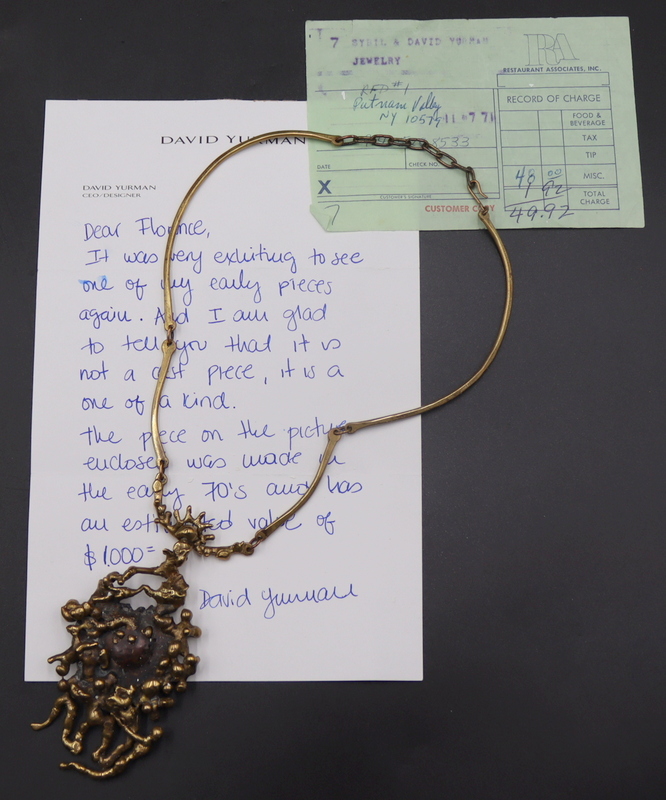 7 SYBIL & DAVID YURMAN
JEWELRY
RA
RESTAURANT ASSOCIATES, INC.
RFD #1
Putnam Valley
NY 10579
11 7 71
RECORD OF CHARGE
FOOD & BEVERAGE
TAX
TIP
48 00 MISC.
1 92
TOTAL CHARGE
49.92
DATE
CHECK NO.
8533
X
CUSTOMER'S SIGNATURE
CUSTOMER COPY
7
DAVID YURMAN
DAVID YURMAN
CEO-DESIGNER
Dear Florence,
It was very exhiting to see
one of my early pieces
again. And I am glad
to tell you that it is
not a cast piece, it is a
one of a kind.
The piece on the picture
enclosed was made in
the early 70's and has
an estimated value of
$1.000=
David Yurman